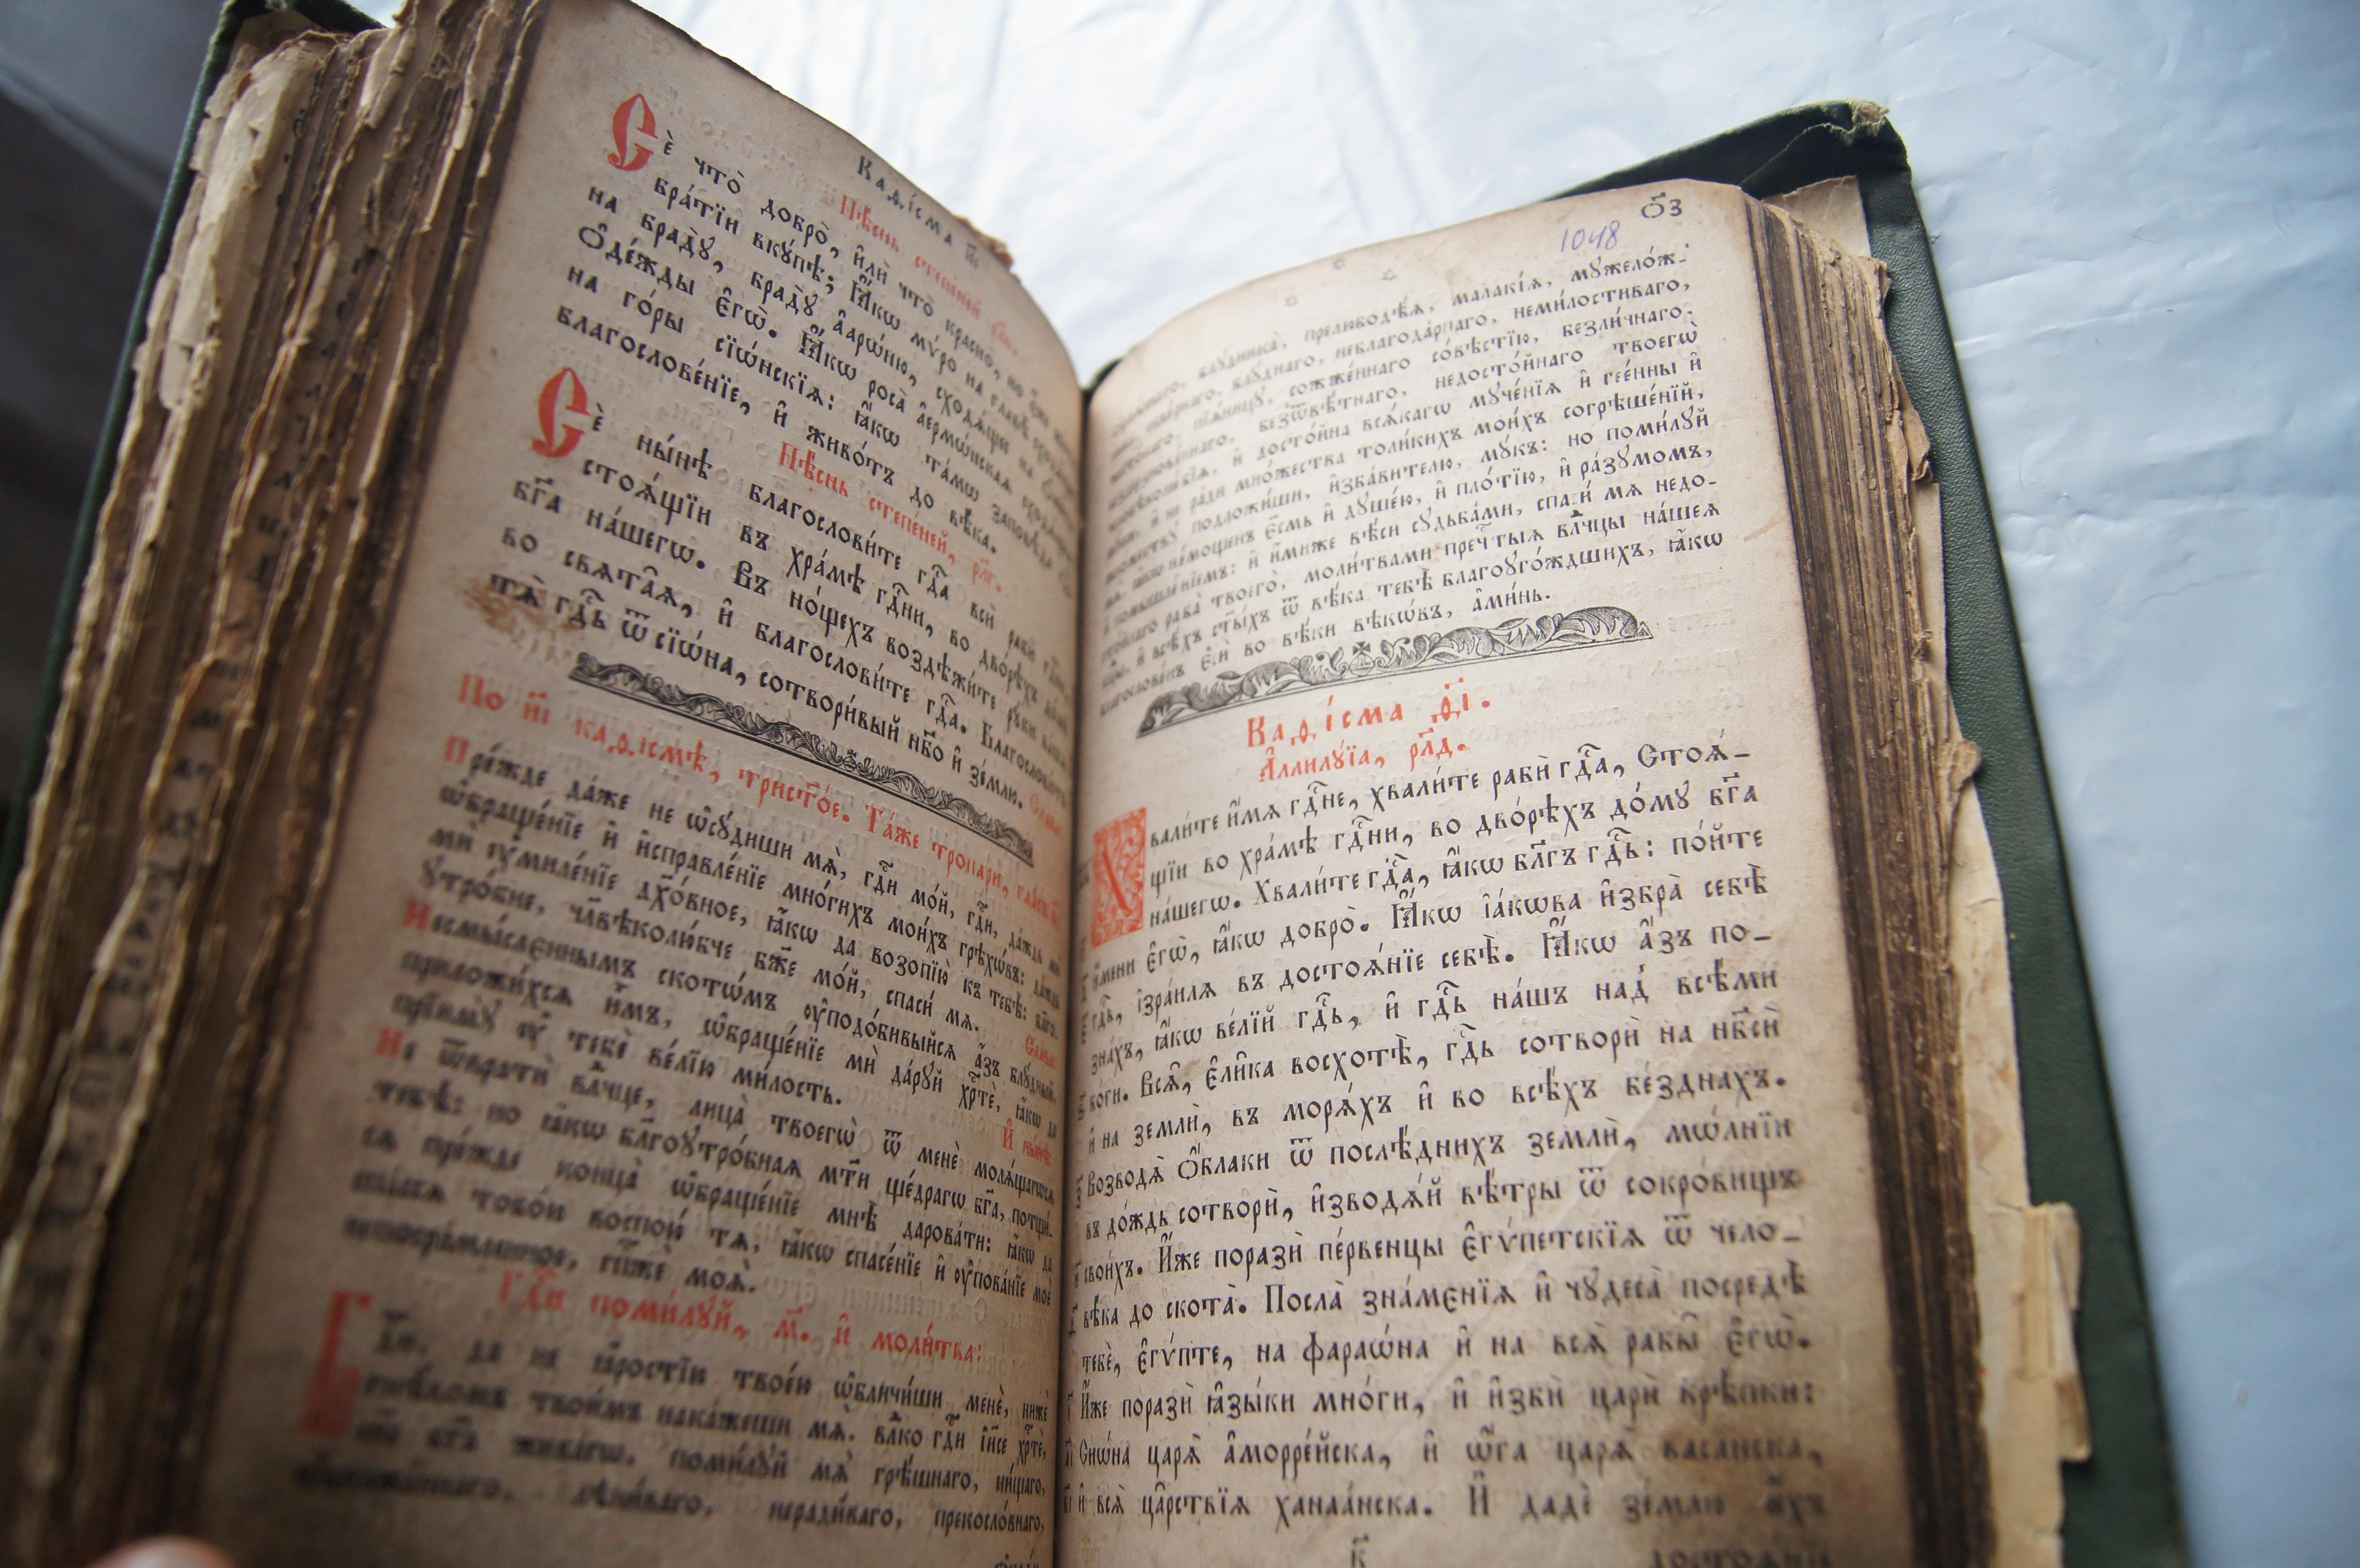 Каѳі́сма и҃і
Пѣ́снь степе́ней
Сѐ что̀ добро̀, и҆лѝ что̀ красно̀, но є҆́же
бра́тїи вкꙋ́пѣ; Ꙗ҆́кѡ мѵ́ро на главѣ̀
на брадꙋ̀, брадꙋ̀ а҆арѡ́ню, сходѧ́щее на
Ѻ҆де́жды є҆гѡ̀. Ꙗ҆́кѡ роса̀ а҆ермѡ́нскаѧ сходѧ́щаѧ
на го́ры сїѡ́нскїѧ: ꙗ҆́кѡ та́мѡ заповѣ́да
благослове́нїе, и҆ живо́тъ до вѣ́ка.
Пѣ́снь степе́ней, рл҃г.
Сѐ ны́нѣ благослови́те гдⷭ҇а всѝ рабѝ
стоѧ́щїи въ хра́мѣ гдⷭ҇ни, во дво́рѣхъ
бг҃а на́шегѡ. Въ но́щехъ воздѣжи́те рꙋ́ки
во свѧта̑ѧ, и҆ благослови́те гдⷭ҇а. Благослови́тъ
тѧ̀ гдⷭ҇ь ѿ сїѡ́на, сотвори́вый нб҃о и҆ зе́млю.
По и҃і каѳі́смѣ, трист҃о́е. Та́же тропари̂,
Пре́жде да́же не ѡ҆сꙋ́диши мѧ̀, гдⷭ҇и мо́й, гдⷭ҇и, да́ждь ми
ѡ҆браще́нїе и҆ и҆справле́нїе мно́гихъ мои́хъ грѣхѡ́въ: да́ждь
мѝ ᲂу҆миле́нїе дх҃о́вное, ꙗ҆́кѡ да возопїю̀ къ тебѣ̀:
ᲂу҆тро́бне, чл҃вѣколю́бче бж҃е мо́й, спаси́ мѧ.
Несмы́сленнымъ скотѡ́мъ ᲂу҆подо́бивыйсѧ а҆́зъ блꙋ́дный,
приложи́хсѧ и҆̀мъ, ѡ҆браще́нїе мѝ да́рꙋй хрⷭ҇тѐ, ꙗ҆́кѡ да
прїимꙋ̀ ᲂу҆ тебѐ ве́лїю ми́лость.
И҆ ны́нѣ:
Не ѿвратѝ влⷣчце, лица̀ твоегѡ̀ ѿ менѐ молѧ́щагосѧ
тебѣ̀: но ꙗ҆́кѡ бл҃гоᲂутро́бнаѧ мт҃и ще́драгѡ бг҃а, потщи́-
сѧ пре́жде конца̀ ѡ҆браще́нїе мнѣ̀ дарова́ти: ꙗ҆́кѡ да
тобо́и воспою́ тѧ, ꙗ҆́кѡ спасе́нїе и҆ ᲂу҆пова́нїе моѐ
гпⷭ҇жѐ моѧ̀.
Гдⷭ҇и поми́лꙋй, м҃. и҆ моли́тва:
Гдⷭ҇и, да не ꙗ҆́ростїи твое́и ѡ҆бличи́ши менѐ, нижѐ
гнѣ́вомъ твои́мъ нака́жеши мѧ̀. влⷣко гдⷭ҇и і҆и҃се хрⷭ҇тѐ,
бг҃а жива́гѡ, поми́лꙋй мѧ̀ грѣ́шнаго, ни́щаго,
лѣни́ваго, неради́ваго, прекосло́внаго,
ѻ҃з
1048
блꙋдника̀, прелюбодѣ́ѧ, малакі́ѧ, мꙋжело́ж-
блꙋ́днаго, неблагода́рнаго, неми́лостиваго,
пїѧ́ницꙋ, сожже́ннаго со́вѣстїю, безли́чнаго,
безѿвѣ́тнаго, недосто́йнаго твоегѡ̀
и҆ досто́йна всѧ́кагѡ мꙋче́нїѧ и҆ гее́нны и҆
и҆ не ра́ди мно́жества толи́кихъ мои́хъ согрѣше́нїй,
подложи́ши, и҆зба́вителю, мꙋ́къ: но поми́лꙋй
ꙗ҆́кѡ не́мощенъ є҆́смь и҆ дꙋше́ю, и҆ пло́тїю, и҆ ра́зꙋмомъ,
и҆ помышле́нїемъ: и҆ и҆́миже вѣ́си сꙋдьба́ми, спаси́ мѧ недо-
раба̀ твоего̀, моли́твами пречⷭ҇тыѧ влⷣчцы на́шеѧ
и҆ всѣ́хъ ст҃ы́хъ ѿ вѣ́ка тебѣ̀ благоᲂуго́ждшихъ, ꙗ҆́кѡ
благослове́нъ є҆сѝ во вѣ́ки вѣкѡ́въ, а҆ми́нь.
Каѳі́сма ѳ҃і.
А҆ллилꙋ́їа, рл҃д.
Хвали́те и҆́мѧ гдⷭ҇не, хвали́те рабѝ гдⷭ҇а, Стоѧ́-
щїи во хра́мѣ гдⷭ҇ни, во дво́рѣхъ до́мꙋ бг҃а
на́шегѡ. Хвали́те гдⷭ҇а, ꙗ҆́кѡ бл҃гъ гдⷭ҇ь: по́йте
и҆́мени є҆гѡ̀, ꙗ҆́кѡ добро̀. Ꙗ҆́кѡ і҆а́кѡва и҆збра̀ себѣ̀
гдⷭ҇ь, і҆зра́илѧ въ достоѧ́нїе себѣ̀. Ꙗ҆́кѡ а҆́зъ по-
зна́хъ, ꙗ҆́кѡ ве́лїй гдⷭ҇ь, и҆ гдⷭ҇ь на́шъ над̾ всѣ́ми
бо́ги. Всѧ̑, є҆ли̑ка восхотѣ̀, гдⷭ҇ь сотворѝ на нб҃сѝ
и҆ на землѝ, въ морѧ́хъ и҆ во всѣ́хъ бе́зднахъ.
Возводѧ̀ ѻ҆́блаки ѿ послѣ́днихъ землѝ, мѡ́лнїи
въ до́ждь сотворѝ, и҆зводѧ́й вѣ́тры ѿ сокро́вищъ
свои́хъ. И҆́же поразѝ пе́рвенцы є҆гѵ́петскїѧ ѿ чело-
вѣ́ка до скота̀. Посла̀ зна́мєнїѧ и҆ чꙋдеса̀ посредѣ̀
тебѐ, є҆гѵ́пте, на фараѡ́на и҆ на всѧ̀ рабы̑ є҆гѡ̀.
И҆́же поразѝ ꙗ҆зы́ки мно́ги, и҆ и҆збѝ цари̑ крѣ̑пки:
Сиѡ́на царѧ̀ а҆морре́йска, и҆ ѡ҆́га царѧ̀ васа́нска,
и҆ всѧ̀ ца̑рствїѧ ханаа́нска. И҆ дадѐ зе́млю и҆́хъ
к҃
достоѧ́нїе